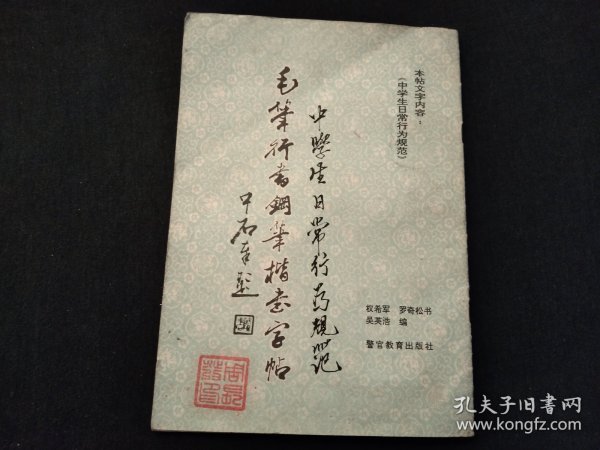 本帖文字内容：
《中学生日常行为规范》
中学生日常行为规范
毛筆行書鋼筆楷書字帖
权希军 罗奇松书
吴英浩 编
警官教育出版社
孔夫子旧书网
www.kongfz.com